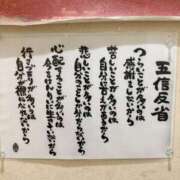 五信反省
つらいことが多いのは
感謝をしないから
苦しいことが多いのは
自分に甘えがあるから
悲しいことが多いのは
自分のことしか分からないから
心配することが多いのは
今をけんめいに生きていないから
行きづまりが多いのは
自分が裸になれないから